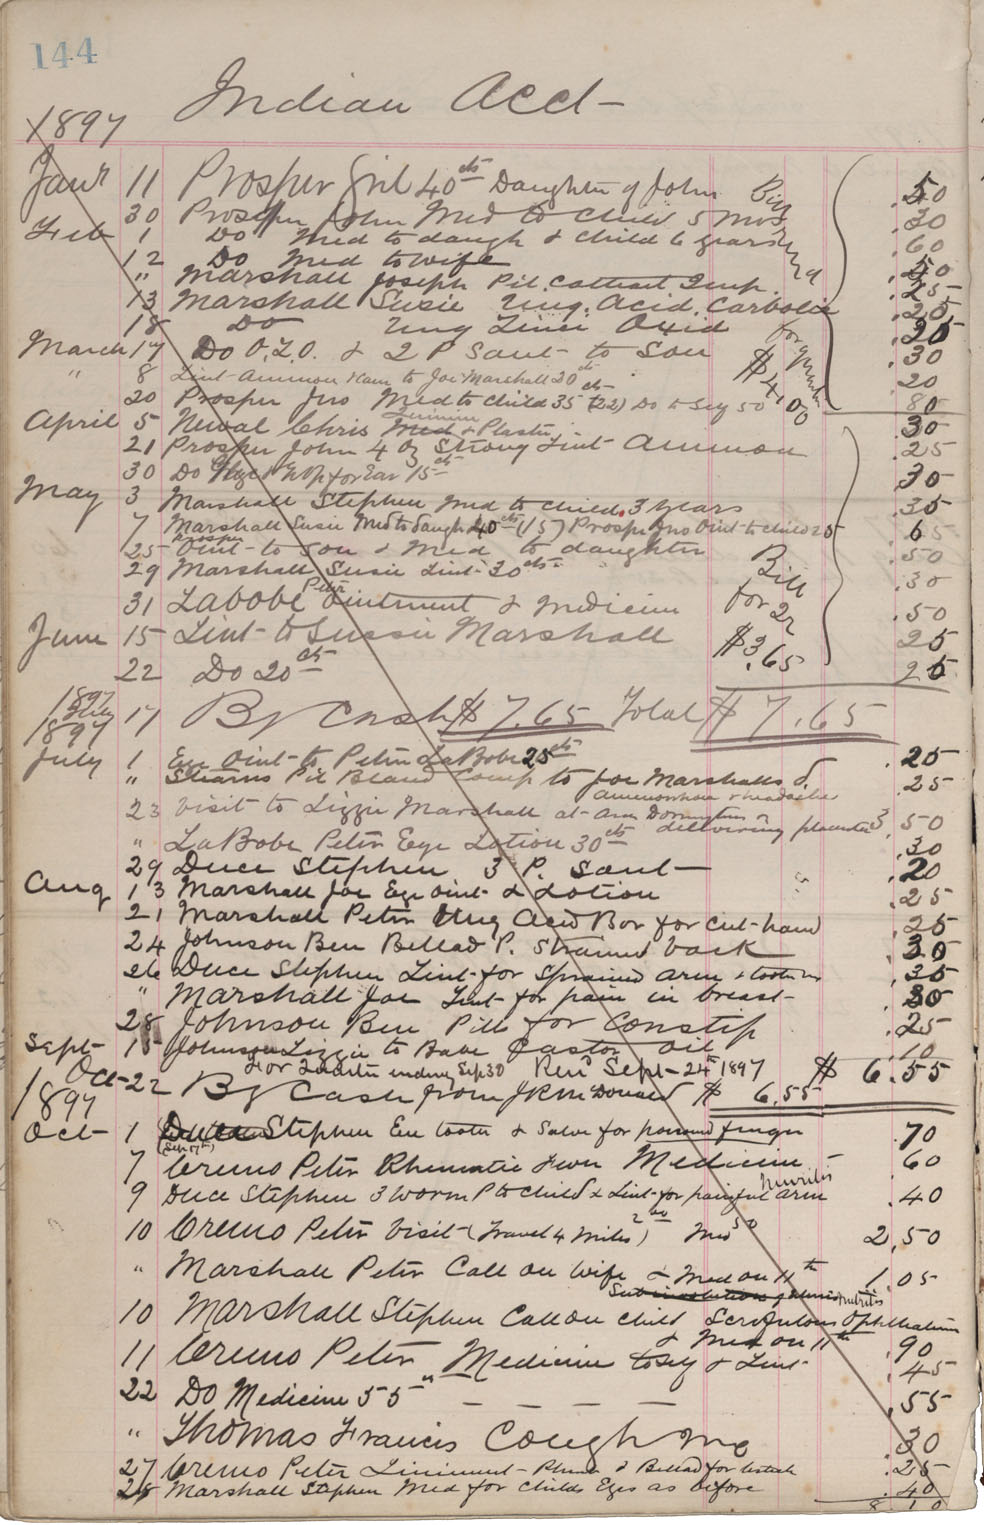 144
Indian Acct
1897
Jany 11 Prosper Girl 40cts Daughter of John .50
30 Prosper John Med to child 5 mos .30
Feb 1 Do Med to daugh & child 6 years .60
12 Do Med to wife .50
" Marshall Joseph Pil. Cathart Imp. .25
13 Marshall Susie Ung. Acid. Carbolic .25
18 Do Ung Zinci Oxid .25
March 17 Do O.Z.O. & 2 P Sant to Son .30
" 8 Lint Ammon to Joe Marshall 20cts .20
20 Prosper Jno Med to child 35cts (22) Do to Sey 50 .80
Bill for quarter $4.00
April 5 Newal Chris Med & Plaster .30
21 Prosper John 4 oz Strong Lint Ammon .25
30 Do for Ear 15cts .30
May 3 Marshall Stephen Med to child 3 years .35
7 Marshall Susie Med to daugh 40cts (15) Prosper Jno Oint to child 25 .65
25 Prosper Oint to son & Med to daughter .50
29 Marshall Susie Lint 30cts .30
31 LaBobe Peter Ointment & Medicine .50
June 15 Lint to Sussie Marshall 25
22 Do 20cts 25
Bill for 2r $3.65
1897 July 17 By Cash $7.65 Total $7.65
1897
July 1 Eye Oint to Peter LaBobe 25cts .25
" Stearns Pil Bland Comp to Joe Marshalls d. .25
amenorrhoea & headache
23 Visit to Lizzie Marshall at delivering placenta 3.50
" LaBobe Peter Eye Lotion 30cts .30
29 Duce Stephen 3 P. Sant .20
Aug 13 Marshall Joe Eye Oint & Lotion .25
21 Marshall Peter Ung Acid Bor for cut hand .25
24 Johnson Ben Bellad P. Strained back .30
26 Duce Stephen Lint for Sprained arm & .35
" Marshall Joe Lint for pain in breast .30
28 Johnson Ben Pills for Constip .25
Sept 15 Johnson Lizzie to Babe Castor Oil .10
For Quarter ending Sep 30 Ren Sept 24th 1897 $6.55
Oct 22 By Cash from J R McDonald $6.55
1897
Oct 1 Stephen & Salve for poisoned finger .70
7 Cremo Peter Rhumatic Fever Medicine .60
9 Duce Stephen 3 Worm P to child & Lint for painful arm .40
Neuritis
10 Cremo Peter Visit (Travel 4 Miles) 2.00 Med 50 2.50
" Marshall Peter Call on wife & Med on 11th 1.05
10 Marshall Stephen Call on child Scrofulous Ophthalmia
& Med on 11th .90
11 Cremo Peter Medicine to Sey & Lint .45
22 Do Medicine 55" .55
" Thomas Francis Cough Mx .30
27 Cremo Peter Liniment & Bellad for .25
28 Marshall Stephen Med for childs Eyes as before .40
8.10